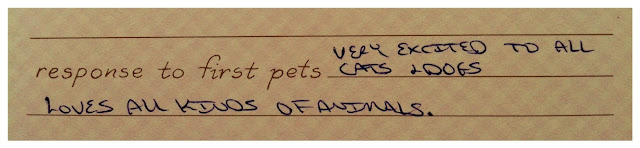 VERY EXCITED TO ALL
response to first pets CATS & DOGS
LOVES ALL KINDS OF ANIMALS.